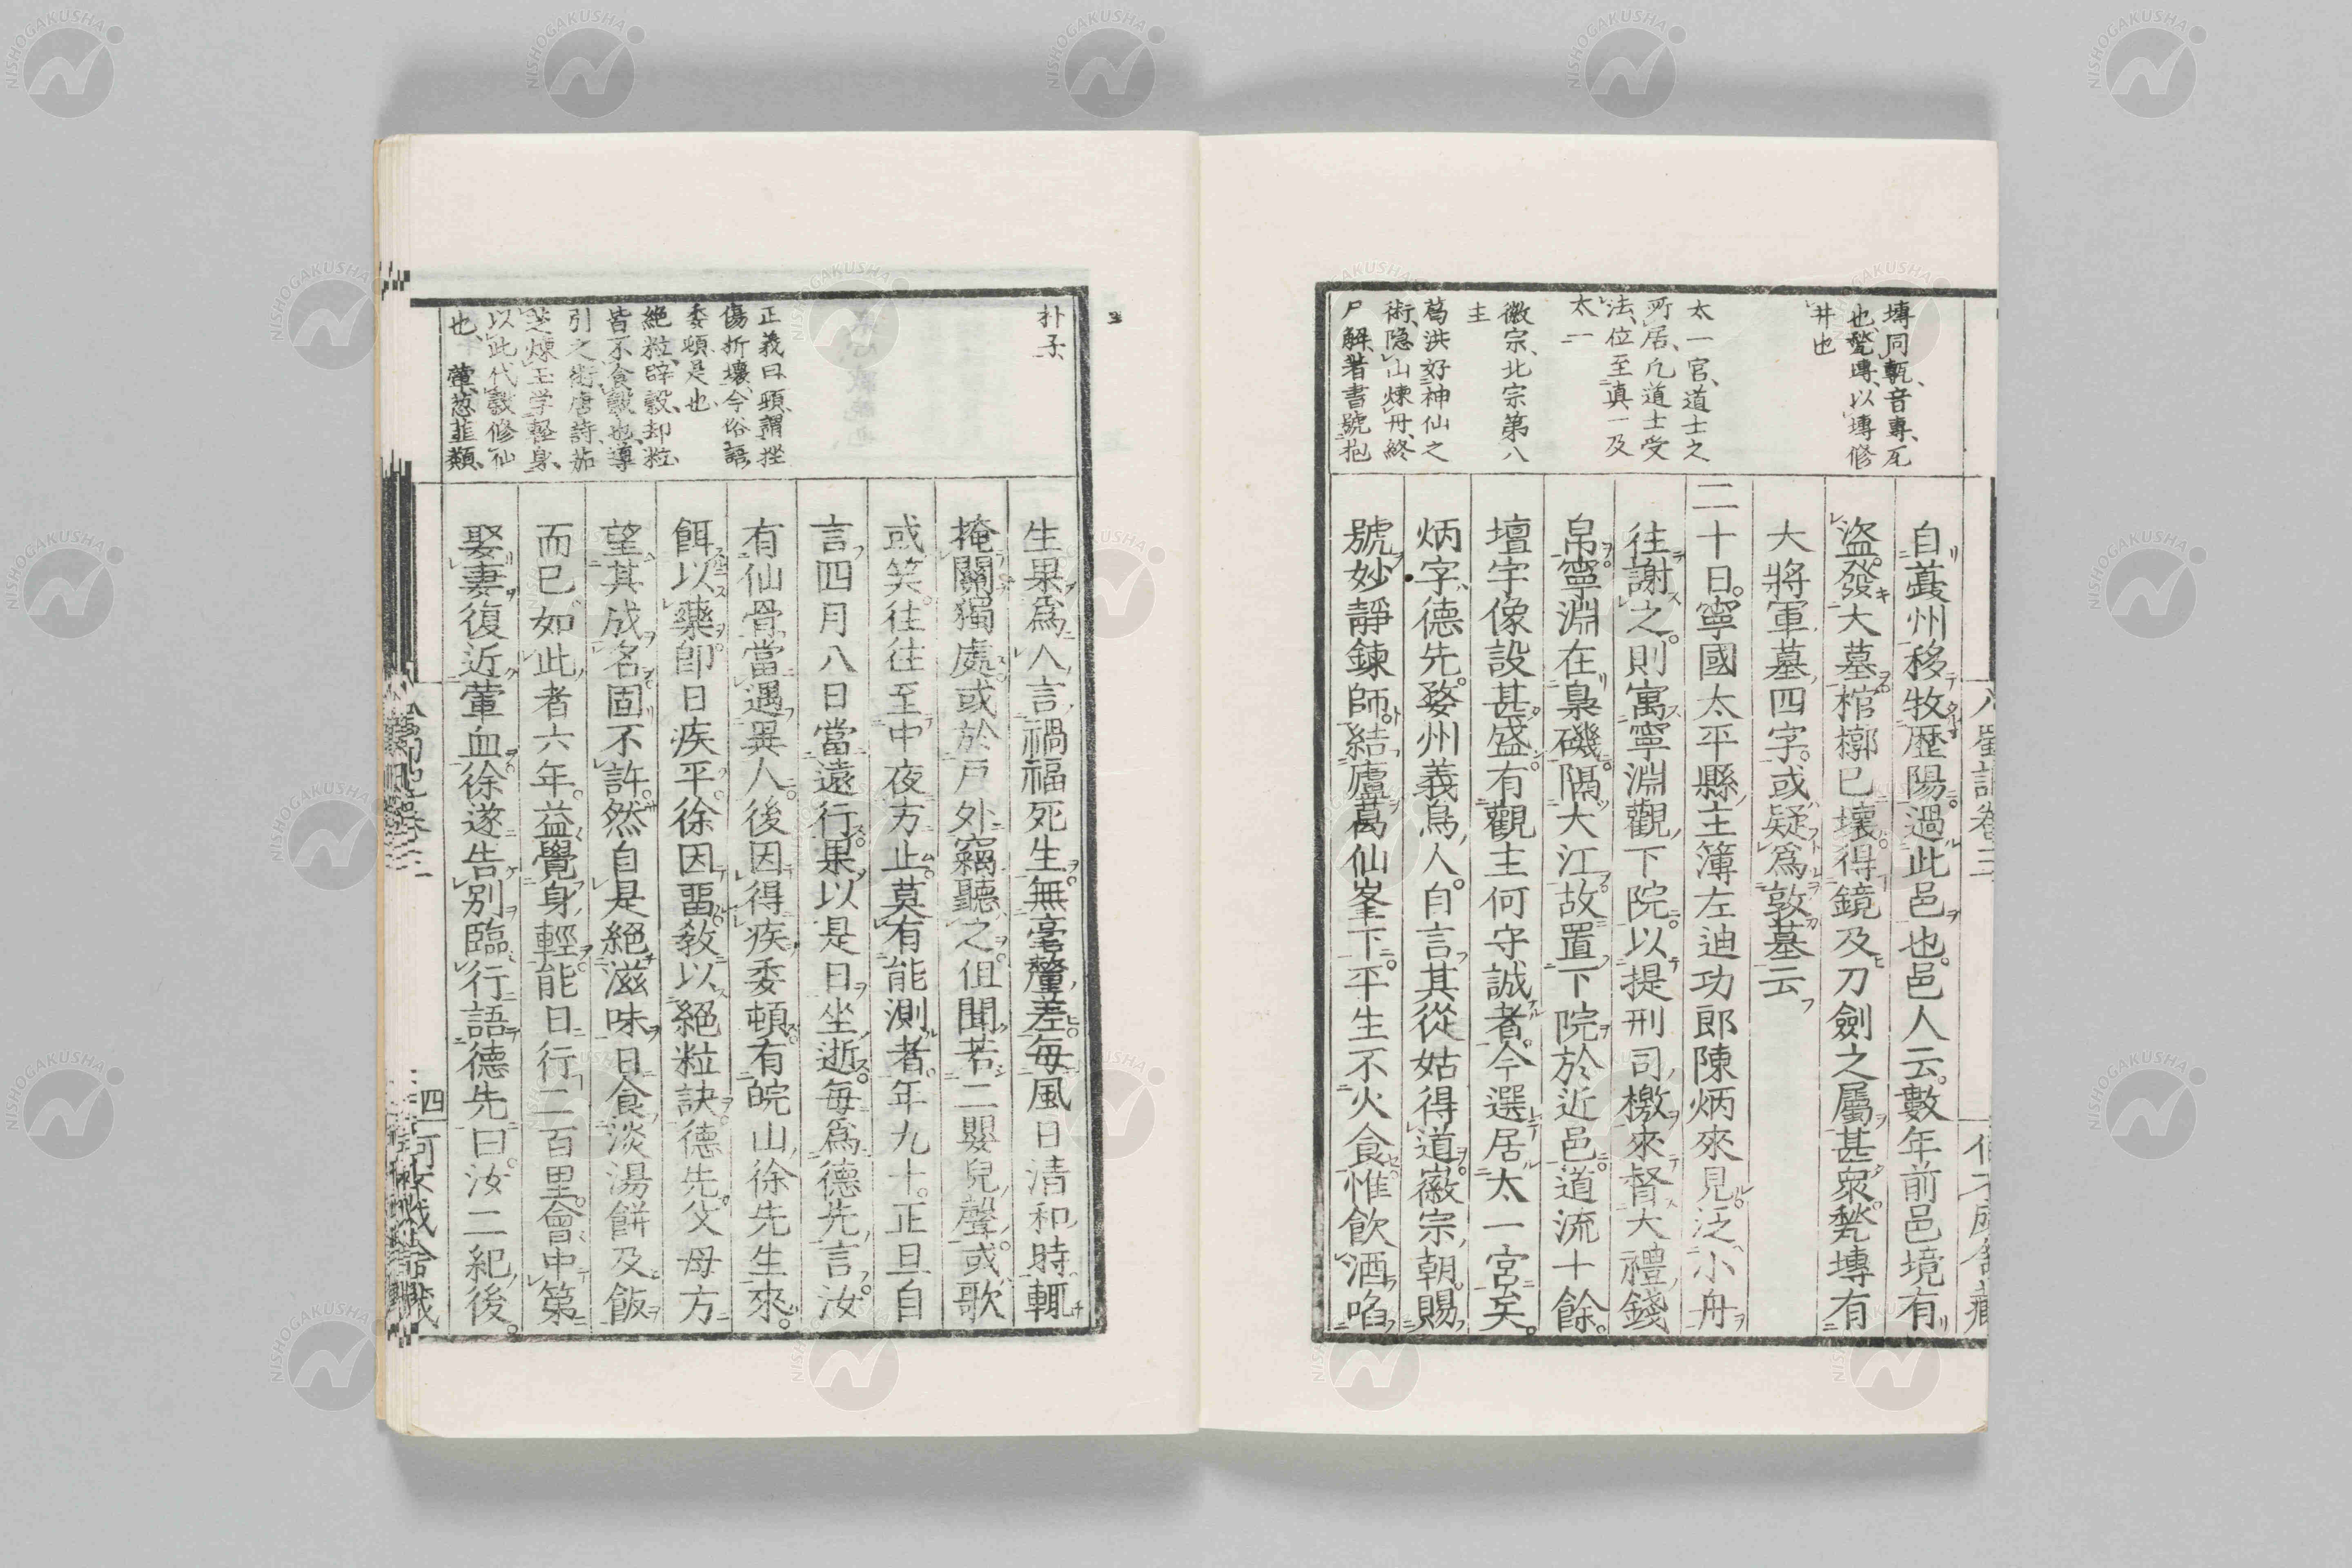 塼同甎、音専、瓦
也、甃塼、以塼修
井也
太一宮、道士之
所居、凡道士受
法、位至真一及
太一
徽宗、北宗第八
主
葛洪好神仙之
術、隐山煉丹、終
尸解、著書號抱
自蕺州移牧歷陽過此邑也邑人云數年前邑境有
盜發大墓棺槨已壞得鏡及刀劍之屬甚衆甃塼有
大將軍墓四字或疑爲敦墓云
二十日寧國太平縣主簿左迪功郎陳炳來見泛小舟
往謝之則寓寧淵觀下院以提刑司檄來督大禮錢
帛寧淵在梟磯隔大江故置下院於近邑道流十餘
壇宇像設甚盛有觀主何守誠者今選居太一宮矣
炳字德先婺州義烏人自言其從姑得道徽宗朝賜
號妙靜鍊師結廬葛仙峯下平生不火食惟飲酒啗
入蜀記卷三
朴子
正義曰頓謂挫
傷折壞、今俗語
委頓是也
絶粒、辟穀、却粒、
皆不食穀也、導
引之術、唐詩、茹
芝煉玉学軽身、
以此代穀修仙
也、葷、葱韮類、
生果爲人言禍福死生無毫釐差每風日清和時輒
掩關獨處或於戸外竊聽之但聞若二嬰兒聲或歌
或笑往往至中夜方止莫有能測者年九十正旦自
言四月八日當遠行果以是日坐逝每爲德先言汝
有仙骨當遇異人後因得疾委頓有皖山徐先生來
餌以藥卽日疾平徐因畱敎以絕粒訣德先父母方
望其成名固不許然自是絕滋味日食淡湯餅及飯
而已如此者六年益覺身輕能日行二百里會中第
娶妻復近葷血徐遂告別臨行語德先曰汝二紀後
四